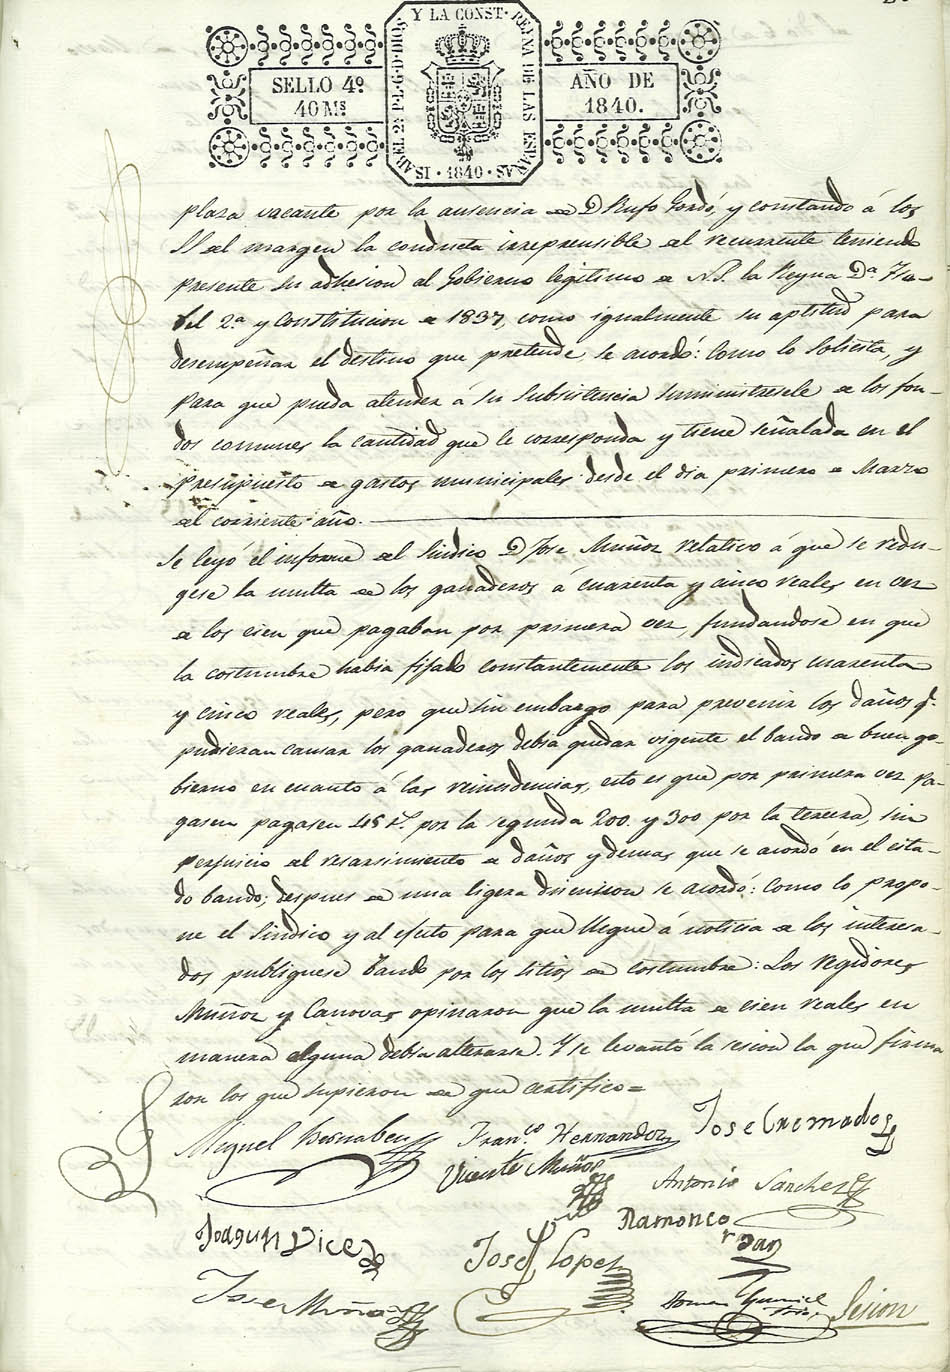 SELLO 4º
40 Mˢ
ISABEL 2ª P.L.G.D.DIOS Y LA CONST. REYNA DE LAS ESPAÑAS
· 1840 ·
AÑO DE
1840.
plaza vacante por la ausencia de D Rufo Gordó, y constando á los
SS del margen la conducta irreprensible del recurrente teniendo
presente su adhesion al Gobierno legitimo de N.S. la Reyna Dª Ysa-
bel 2ª y Constitucion de 1837, como igualmente su aptitud para
desempeñar el destino que pretende se acordó: Como lo solicita, y
para que pueda atender á su subsistencia suministresele de los fon-
dos comunes la cantidad que le corresponda y tiene señalada en el
presupuesto de gastos municipales desde el dia primero de Marzo
del corriente año.
Se leyó el informe del Sindico D Jose Muñoz relativo á que se redu-
gese la multa de los ganaderos á cuarenta y cinco reales en vez
de los cien que pagaban por primera vez, fundandose en que
la costumbre habia fijado constantemente los indicados cuarenta
y cinco reales, pero que sin embargo para prevenir los daños q.
pudieran causar los ganaderos debia quedar vigente el bando de buen go-
bierno en cuanto á las reincidencias, esto es que por primera vez pa-
gasen pagasen 45 rˢ por la segunda 200. y 300 por la tercera, sin
perjuicio del resarsimiento de daños y demas que se acordó en el cita-
do bando; despues de una ligera discusion se acordó: Como lo propo-
ne el Sindico y al efecto para que llegue á noticia de los interesa-
dos publiquese bando por los sitios de costumbre: Los Regidores
Muñoz y Canovas opinaron que la multa de cien reales en
manera alguna debia alterarse. Y se levantó la sesion la que firma
ron los que supieron de que certifico =
Miguel Bernabeu
Franᶜᵒ Hernandez
Jose Cremades
Vicente Muñoz
Antonio Sanchez
Joaquin Vicedo
Jose Lopez
Ramon Co
rdan
Jose Muñoz
Sesion